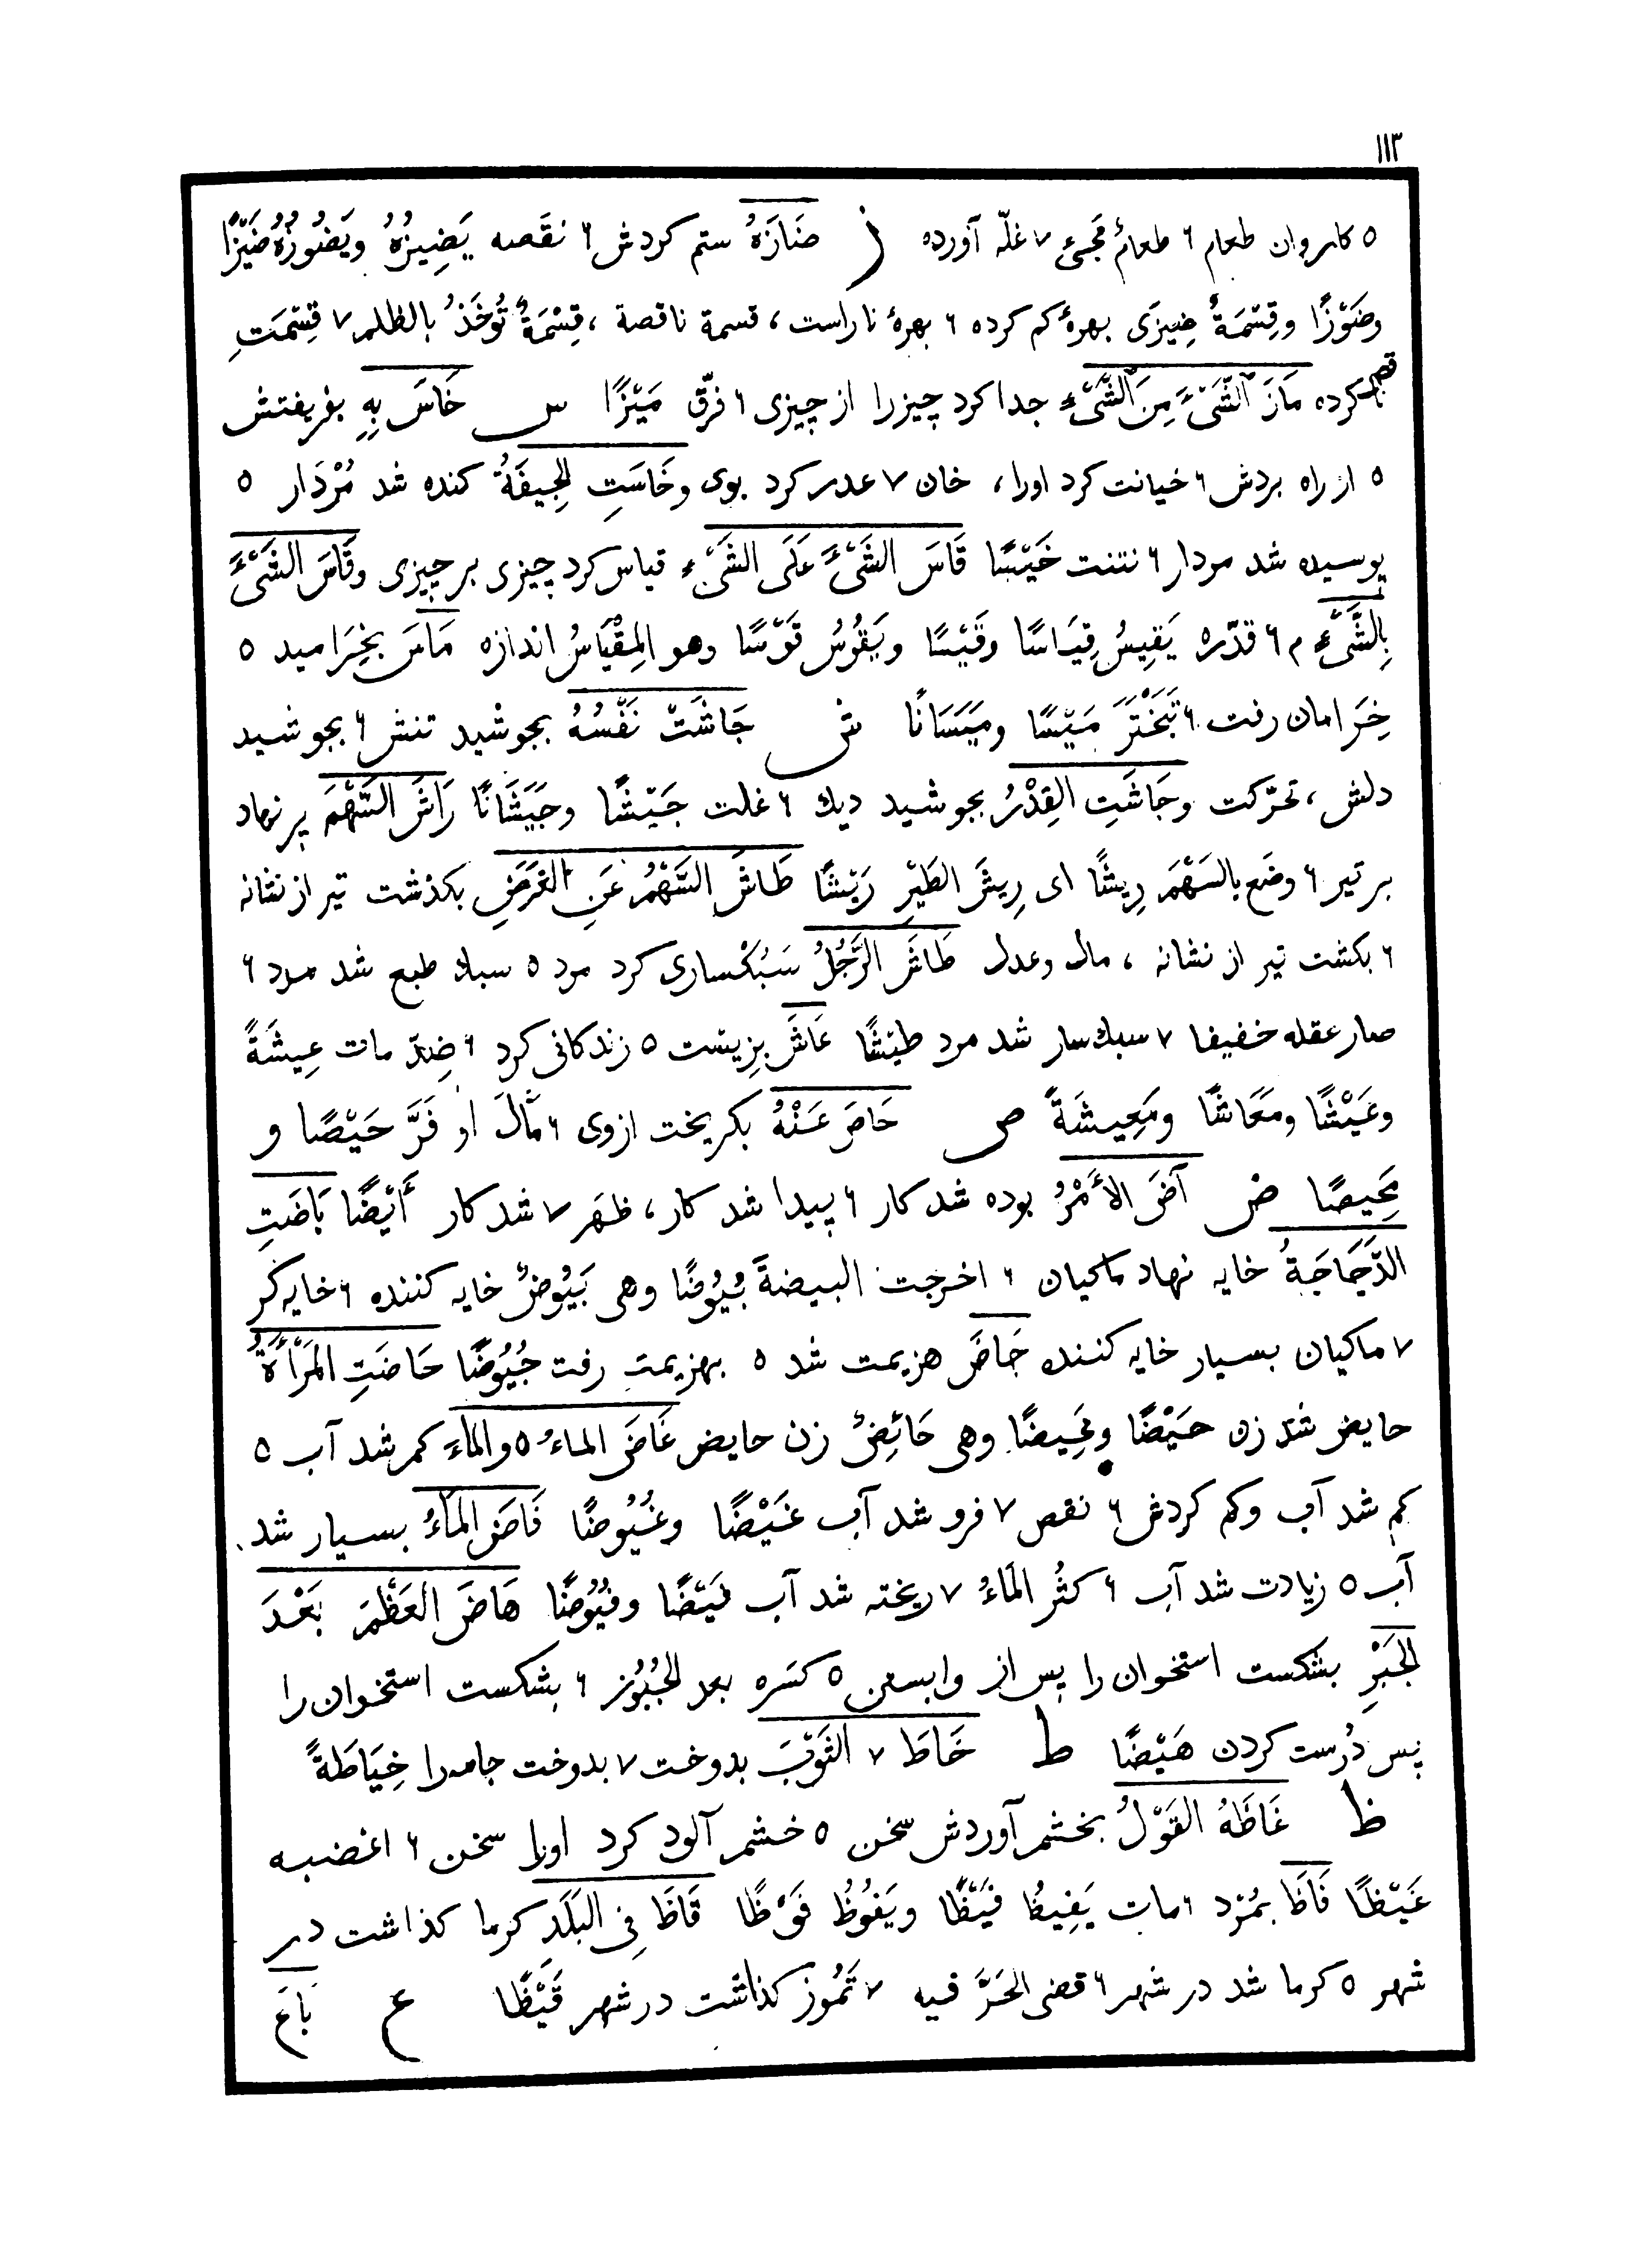 ١١٣
٥ كاروان طعام ٦ طعامٌ مَجیٔ ٧ غلّه آورده ز ضَازَهُ ستم كردش ٦ نقَصه يَضِيزُهُ ويَضُوزُهُ ضَيْزًا
وضَوْزًا وقِسْمَةٌ ضِيزَى بهرهٔ كم كرده ٦ بهرهٔ ناراست، قسمة ناقصة، قِسْمَةٌ تُوخَذُ بالظلم ٧ قِسْمَتِ
كرده مَازَ الشَّیْءَ مِنَ الشَّیْءِ جدا كرد چيزرا از چيزى ٦ فرّق مَيْزًا س خَاسَ بِهِ بفريفتش
٥ از راه بردش ٦ خيانت كرد اورا، خان ٧ غدر كرد بوى وخَاسَتِ الجِيفَةُ كنده شد مُرْدَار ٥
پوسيده شد مردار ٦ نتنت خَيْسًا قَاسَ الشَّیْءَ عَلَى الشَّیْءِ قياس كرد چيزى بر چيزى وقَاسَ الشَّیْءَ
بِالشَّیْءِ م ٦ قدّره يَقِيسُ قِيَاسًا وقَيْسًا ويَقُوسُ قَوْسًا وهو المِقْيَاسُ اندازه مَاسَ بخِرَاميد ٥
خِرَامان رفت ٦ تَبَخْتَرَ مَيْسًا ومَيَسَانًا ش جَاشَتْ نَفْسُهُ بجوشيد تنش ٦ بجوشيد
دلش، تحرّكت وجَاشَتِ القِدْرُ بجوشيد ديك ٦ غلت جَيْشًا وجَيَشَانًا رَاشَ السَّهْمَ پر نهاد
بر تير ٦ وضع بالسَهْمَ رِيشًا اى رِيشَ الطَيْرِ رَيْشًا طَاشَ السَّهْمُ عَنِ الغَرَضِ بكذشت تير از نشانه
٦ بكشت تير از نشانه، مال وعدل طَاشَ الرَّجُلُ سَبُكْسارى كرد مرد ٥ سبك طبع شد مرد ٦
صار عقله خفيفا ٧ سبك سار شد مرد طيْشًا عَاشَ بزِيَست ٥ زندكانى كرد ٦ ضِدّ مات عِيشَةً
وعَيْشًا ومَعَاشًا ومَعِيشَةً ص حَاصَ عَنْهُ بكريخت ازوى ٦ مَالَ او فَرَّ حَيْصًا و
مَحِيصًا ض آضَ الأَمْرُ بوده شد كار ٦ پيدا شد كار، ظهَر ٧ شد كار أَيْضًا بَاضَتِ
الدَّجَاجَةُ خايه نهاد ماكيان ٦ اخرجت البيضةَ بُيُوضًا وهى بَيُوضٌ خايه كننده ٦ خايه كَر
٧ ماكيان بسيار خايه كننده جَاضَ هزيمت شد ٥ بهزيمت رفت جُيُوضًا حَاضَتِ المَرْأَةُ
حايض شد زن حَيْضًا ومَحِيضًا وهى حَائِضٌ زن حايض غَاضَ الماءُ ٥ والماءَ كم شد آب ٥
كم شد آب وكم كردش ٦ نقص ٧ فرو شد آب غَيْضًا وغُيُوضًا فَاضَ المَاءُ بسيار شد
آب ٥ زيادت شد آب ٦ كثُر المَاءُ ٧ ريخته شد آب فَيْضًا وفُيُوضًا هَاضَ العَظْمَ بَعْدَ
الجَبْرِ بشكست استخوان را پس از وابستن ٥ كسَره بعد الجُبُوز ٦ بشكست استخوان را
پس دُرست كردن هَيْضًا ط خَاطَ ٧ الثَوْبَ بدوخت ٧ بدوخت جامه را خِيَاطَةً
ظ غَاظَهُ القَوْلُ بخشم آوردش سخن ٥ خشم آلود كرد اورا سخن ٦ اغضبه
غَيْظًا فَاظَ بمُرْد ٦ مات يَفِيظُ فَيْظًا ويَفُوظُ فَوْظًا قَاظَ فِى البَلَدِ كرما كذاشت در
شهر ٥ كرما شد در شهر ٦ قضى الحَرَّ فيه ٧ تَمُوز كذاشت در شهر قَيْظًا ع بَاعَ